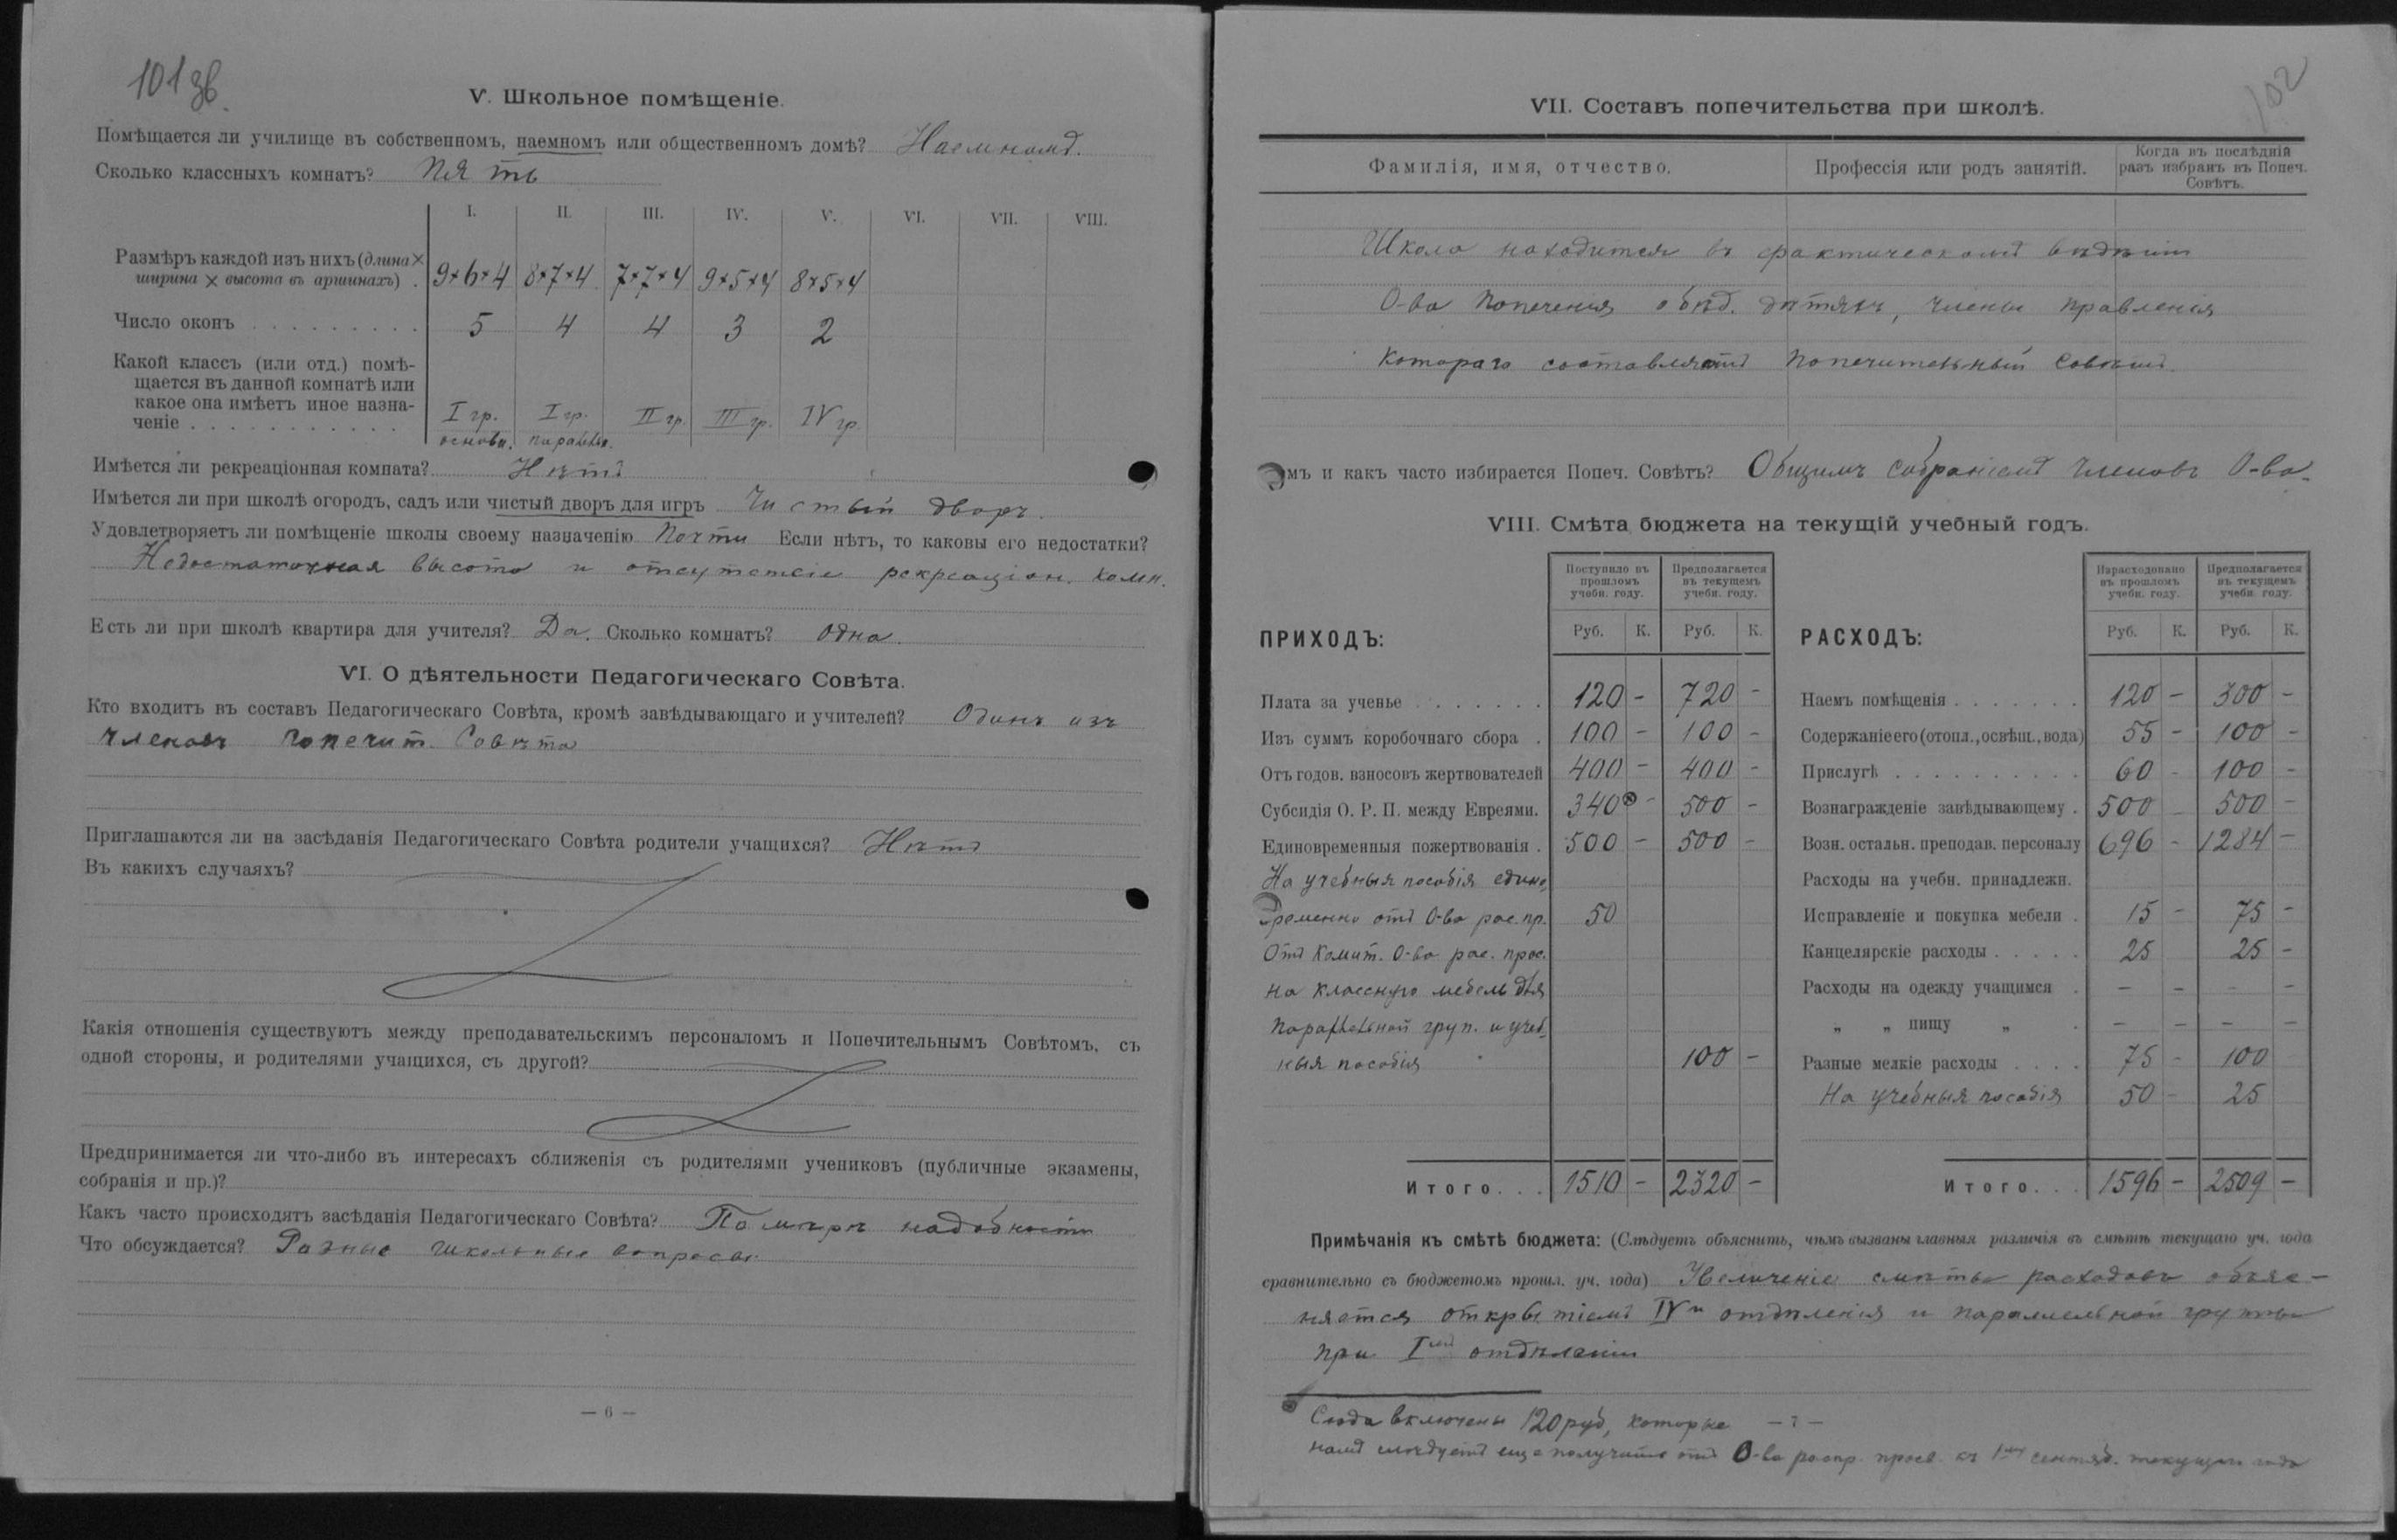 101 об.
V. Школьное помѣщеніе.
Помѣщается ли училище въ собственномъ, наемномъ или общественномъ домѣ? Наемномъ.
Сколько классныхъ комнатъ? Пять
I. II. III. IV. V. VI. VII. VIII.
Размѣръ каждой изъ нихъ (длина ×
ширина × высота въ аршинахъ) . 9×6×4 8×7×4 7×7×4 9×5×4 8×5×4
Число оконъ . . . . . . . . . 5 4 4 3 2
Какой классъ (или отд.) помѣ-
щается въ данной комнатѣ или
какое она имѣетъ иное назна-
ченіе . . . . . . . . . . . I гр. I гр. II гр. III гр. IV гр.
основн. параллел.
Имѣется ли рекреаціонная комната? Нѣтъ
Имѣется ли при школѣ огородъ, садъ или чистый дворъ для игръ Чистый дворъ.
Удовлетворяетъ ли помѣщеніе школы своему назначенію Почти Если нѣтъ, то каковы его недостатки?
Недостаточная высота и отсутствіе рекреаціон. комн.
Есть ли при школѣ квартира для учителя? Да. Сколько комнатъ? Одна.
VI. О дѣятельности Педагогическаго Совѣта.
Кто входитъ въ составъ Педагогическаго Совѣта, кромѣ завѣдывающаго и учителей? Одинъ изъ
членовъ попечит. Совѣта
Приглашаются ли на засѣданія Педагогическаго Совѣта родители учащихся? Нѣтъ
Въ какихъ случаяхъ?
Какія отношенія существуютъ между преподавательскимъ персоналомъ и Попечительнымъ Совѣтомъ, съ
одной стороны, и родителями учащихся, съ другой?
Предпринимается ли что-либо въ интересахъ сближенія съ родителями учениковъ (публичные экзамены,
собранія и пр.)?
Какъ часто происходятъ засѣданія Педагогическаго Совѣта? По мѣрѣ надобности
Что обсуждается? Разные школьные вопросы.
— 6 —
102
VII. Составъ попечительства при школѣ.
Фамилія, имя, отчество. Профессія или родъ занятій. Когда въ послѣдній
разъ избранъ въ Попеч.
Совѣтъ.
Школа находится въ фактическомъ вѣдѣніи
О-ва Попеченія о бѣд. дѣтяхъ, члены правленія
котораго составляютъ попечительный Совѣтъ.
мъ и какъ часто избирается Попеч. Совѣтъ? Общимъ собраніемъ членовъ О-ва.
VIII. Смѣта бюджета на текущій учебный годъ.
ПРИХОДЪ: Поступило въ прошломъ учебн. году. Руб. К. Предполагается въ текущемъ учебн. году. Руб. К.
Плата за ученье . . . . . . . 120 – 720 –
Изъ суммъ коробочнаго сбора . 100 – 100 –
Отъ годов. взносовъ жертвователей 400 – 400 –
Субсидія О. Р. П. между Евреями. 340⊗ – 500 –
Единовременныя пожертвованія . 500 – 500 –
На учебныя пособія едино-
временно отъ О-ва рас. пр. 50
Отъ Комит. О-ва рас. прос.
на классную мебель для
параллельной груп. и учеб-
ныя пособія 100 –
Итого . . . 1510 – 2320 –
РАСХОДЪ: Израсходовано въ прошломъ учебн. году. Руб. К. Предполагается въ текущемъ учебн. году. Руб. К.
Наемъ помѣщенія . . . . . . . 120 – 300 –
Содержаніе его (отопл., освѣщ., вода) 55 – 100 –
Прислугѣ . . . . . . . . . . 60 – 100 –
Вознагражденіе завѣдывающему . 500 – 500 –
Возн. остальн. преподав. персоналу 696 – 1284 –
Расходы на учебн. принадлежн.
Исправленіе и покупка мебели . 15 – 75 –
Канцелярскіе расходы . . . . . 25 25 –
Расходы на одежду учащимся . – – – –
„ „ пищу „ . – – – –
Разные мелкіе расходы . . . . 75 – 100
На учебныя пособія 50 – 25
Итого . . . 1596 – 2509 –
Примѣчанія къ смѣтѣ бюджета: (Слѣдуетъ объяснить, чѣмъ вызваны главныя различія въ смѣтѣ текущаго уч. года
сравнительно съ бюджетомъ прошл. уч. года) Увеличеніе смѣты расходовъ объяс-
няется открытіемъ IV-го отдѣленія и параллельной группы
при I-мъ отдѣленіи
Сюда включены 120 руб., которые
— 7 —
намъ слѣдуетъ еще получить отъ О-ва распр. просв. къ 1-му сентяб. текущаго года